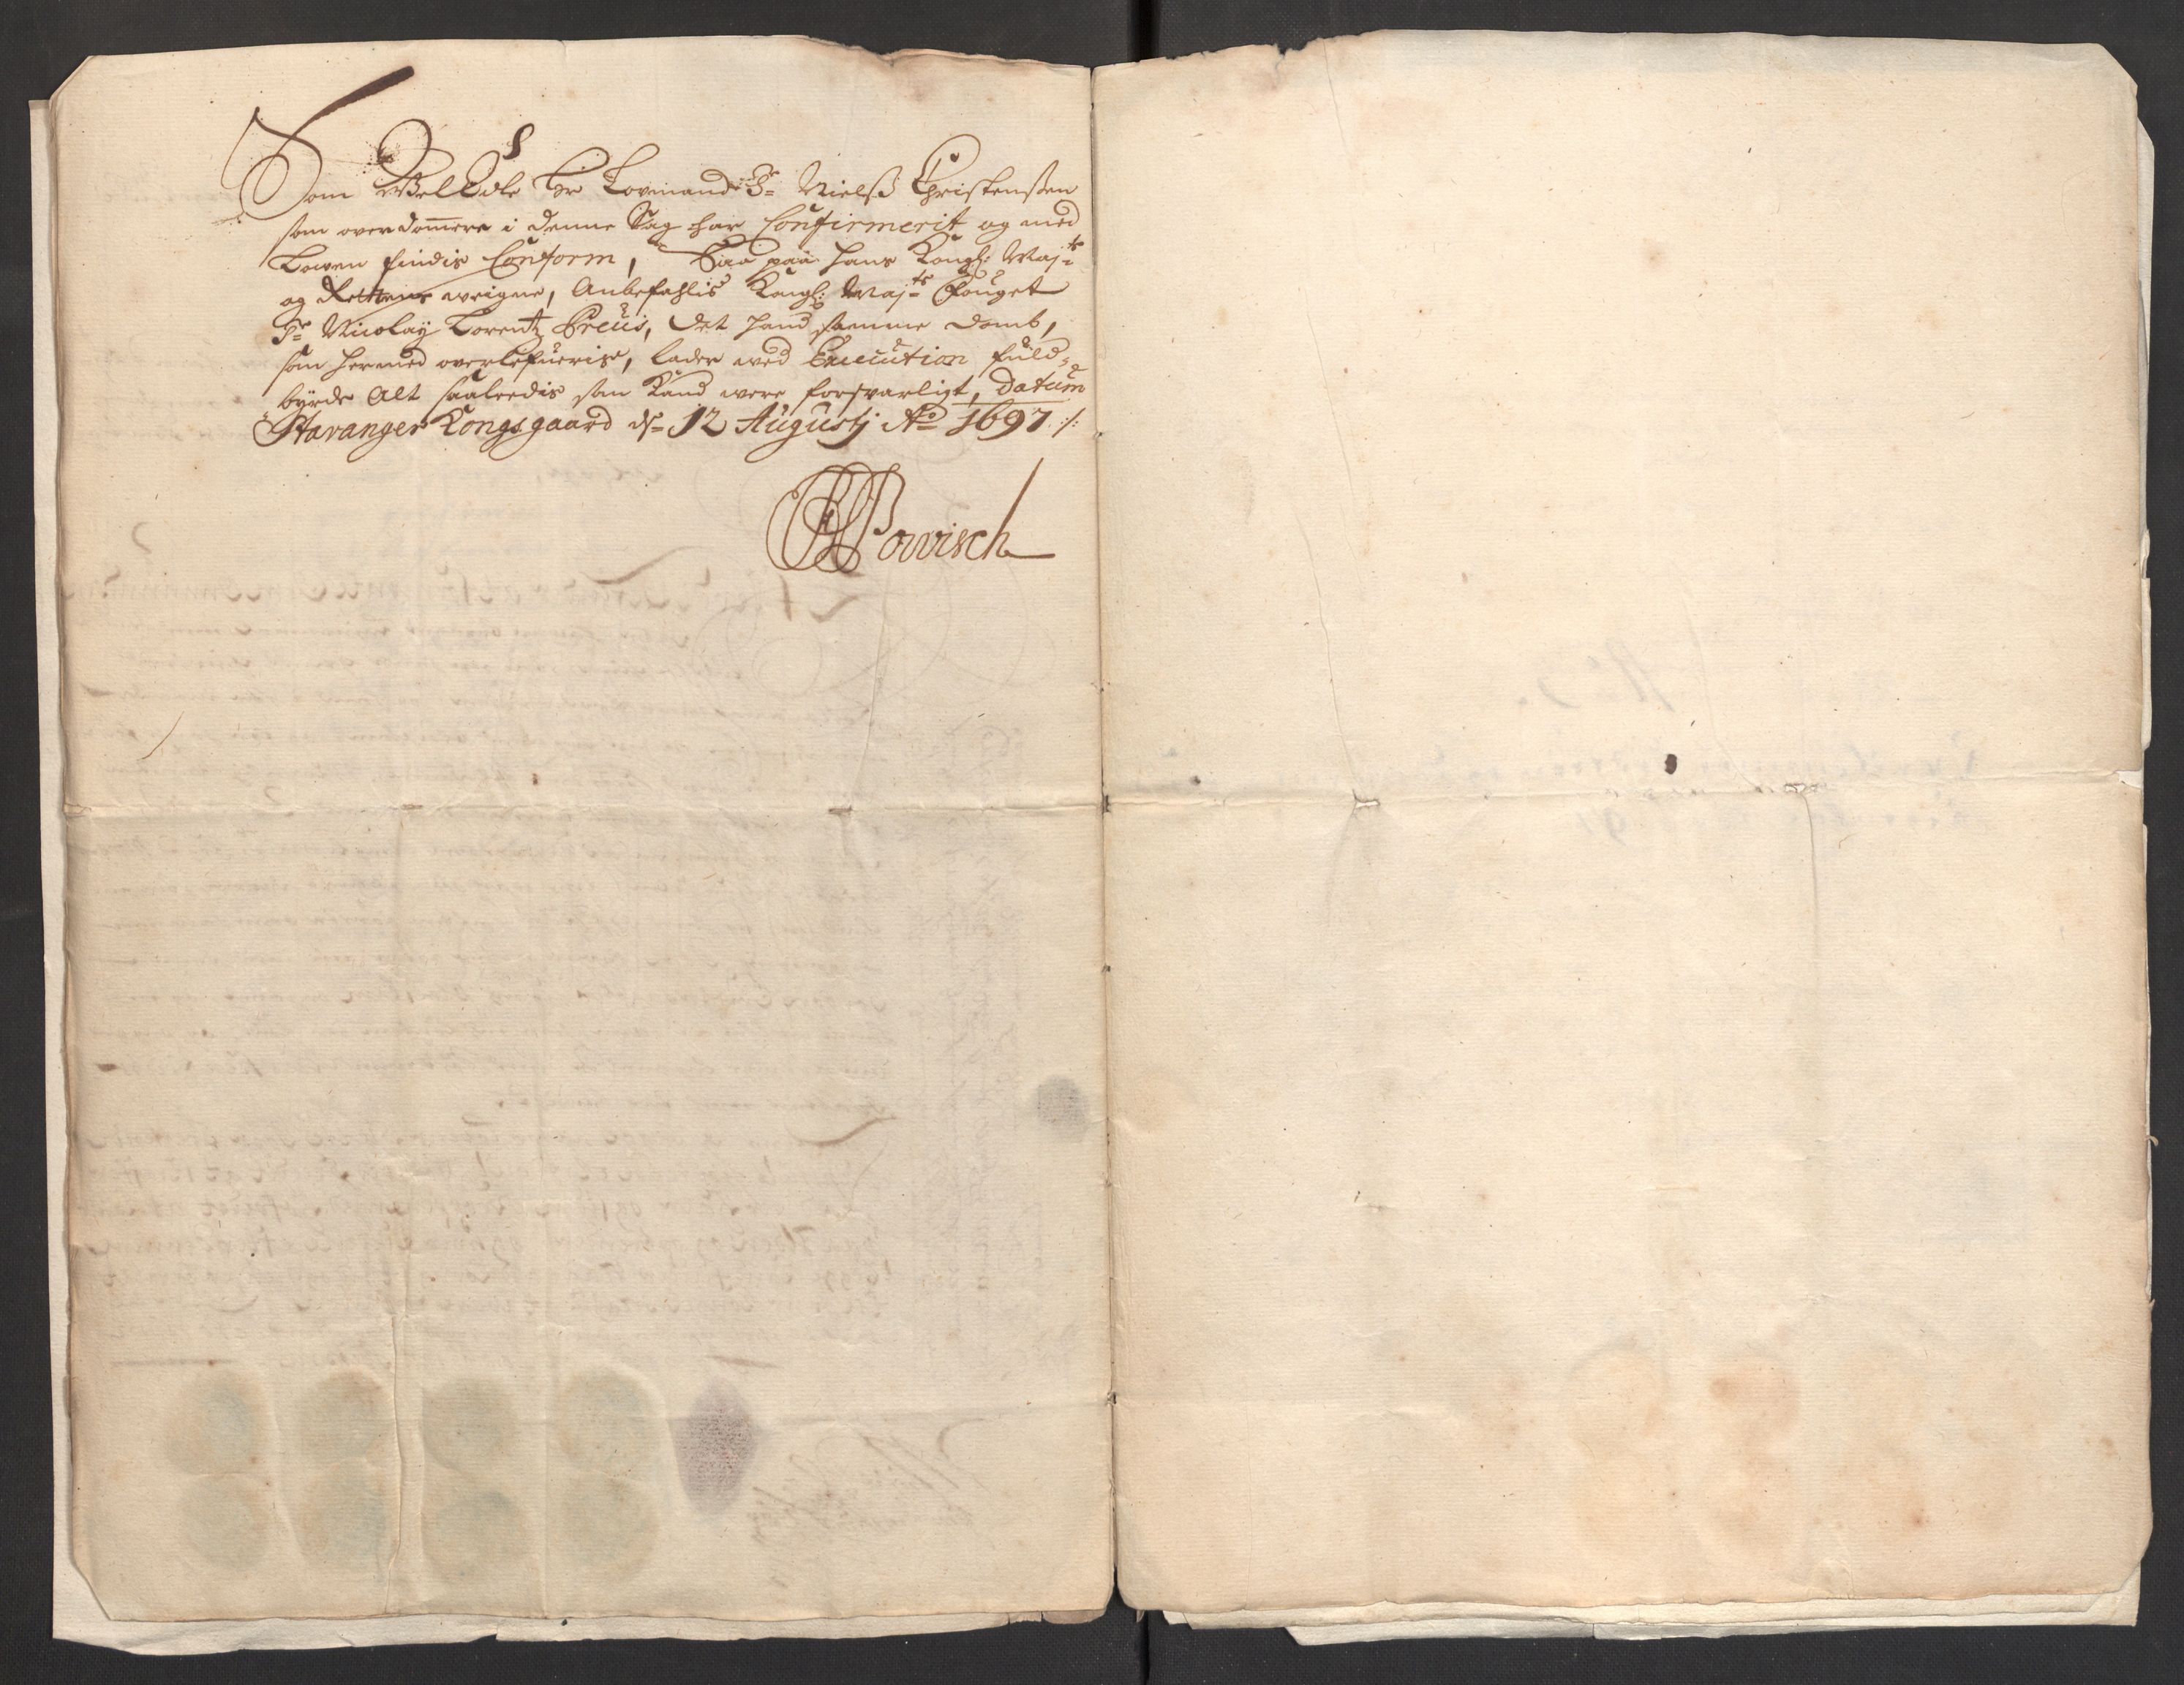 Som WelEdle Hr Lovmand Sr Nielss Christenssen
som over domere i denne Sag har Confirmerit og med
Lowen findis Conform, Saa paa hans Kongl: Majts
og Rettens weigne, Anbefahlis Kongl: Majts Fouget
Sr Nicolay Lorentz Preus, det hand samme domb,
som hermed overlefueris, lader wed Execution fuld-
byrde Alt saaleedis som Kand were forsvarligt, Datum
Stavanger Kongsgaard ds 12 Augustj Ao 1697 :/:
Powisch